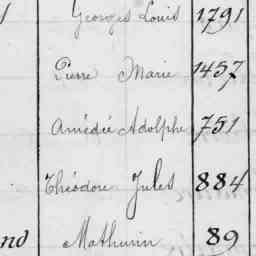 Georges Louis 1791
Pierre Marie 1457
Amédée Adolphe 751
Théodore Jules 884
nd Mathurin 89